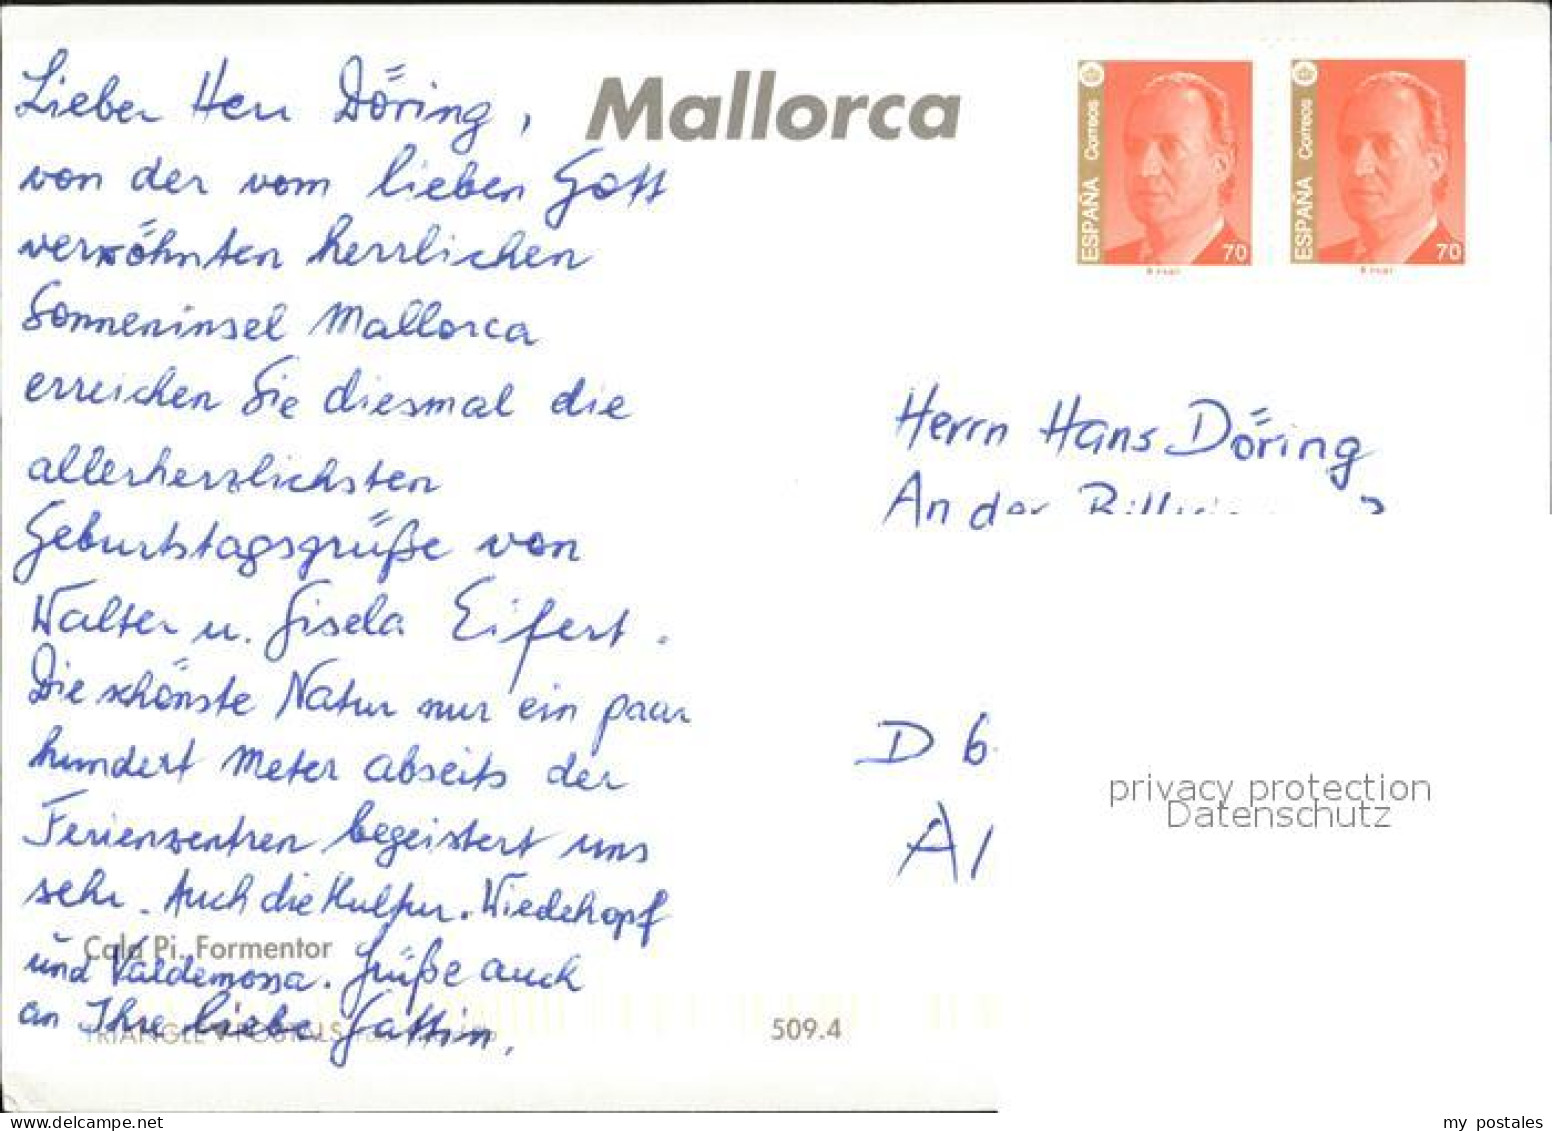 Mallorca
Correos
ESPAÑA
70
Correos
ESPAÑA
70
Lieber Herr Döring,
von der vom lieben Gott
verwöhnten herrlichen
Sonneninsel Mallorca
erreichen Sie diesmal die
allerherzlichsten
Geburtstagsgrüße von
Walter u. Gisela Eifert.
Die schönste Natur nur ein paar
hundert Meter abseits der
Ferienzentren begeistert uns
sehr. Auch die Kultur. Wiedehopf
und Valdemossa. Grüße auch
an Ihre liebe Gattin.
Cala Pi. Formentor
TRIANGLE POSTALS
509.4
Herrn Hans Döring
An der
D 6
privacy protection
Datenschutz
my postales